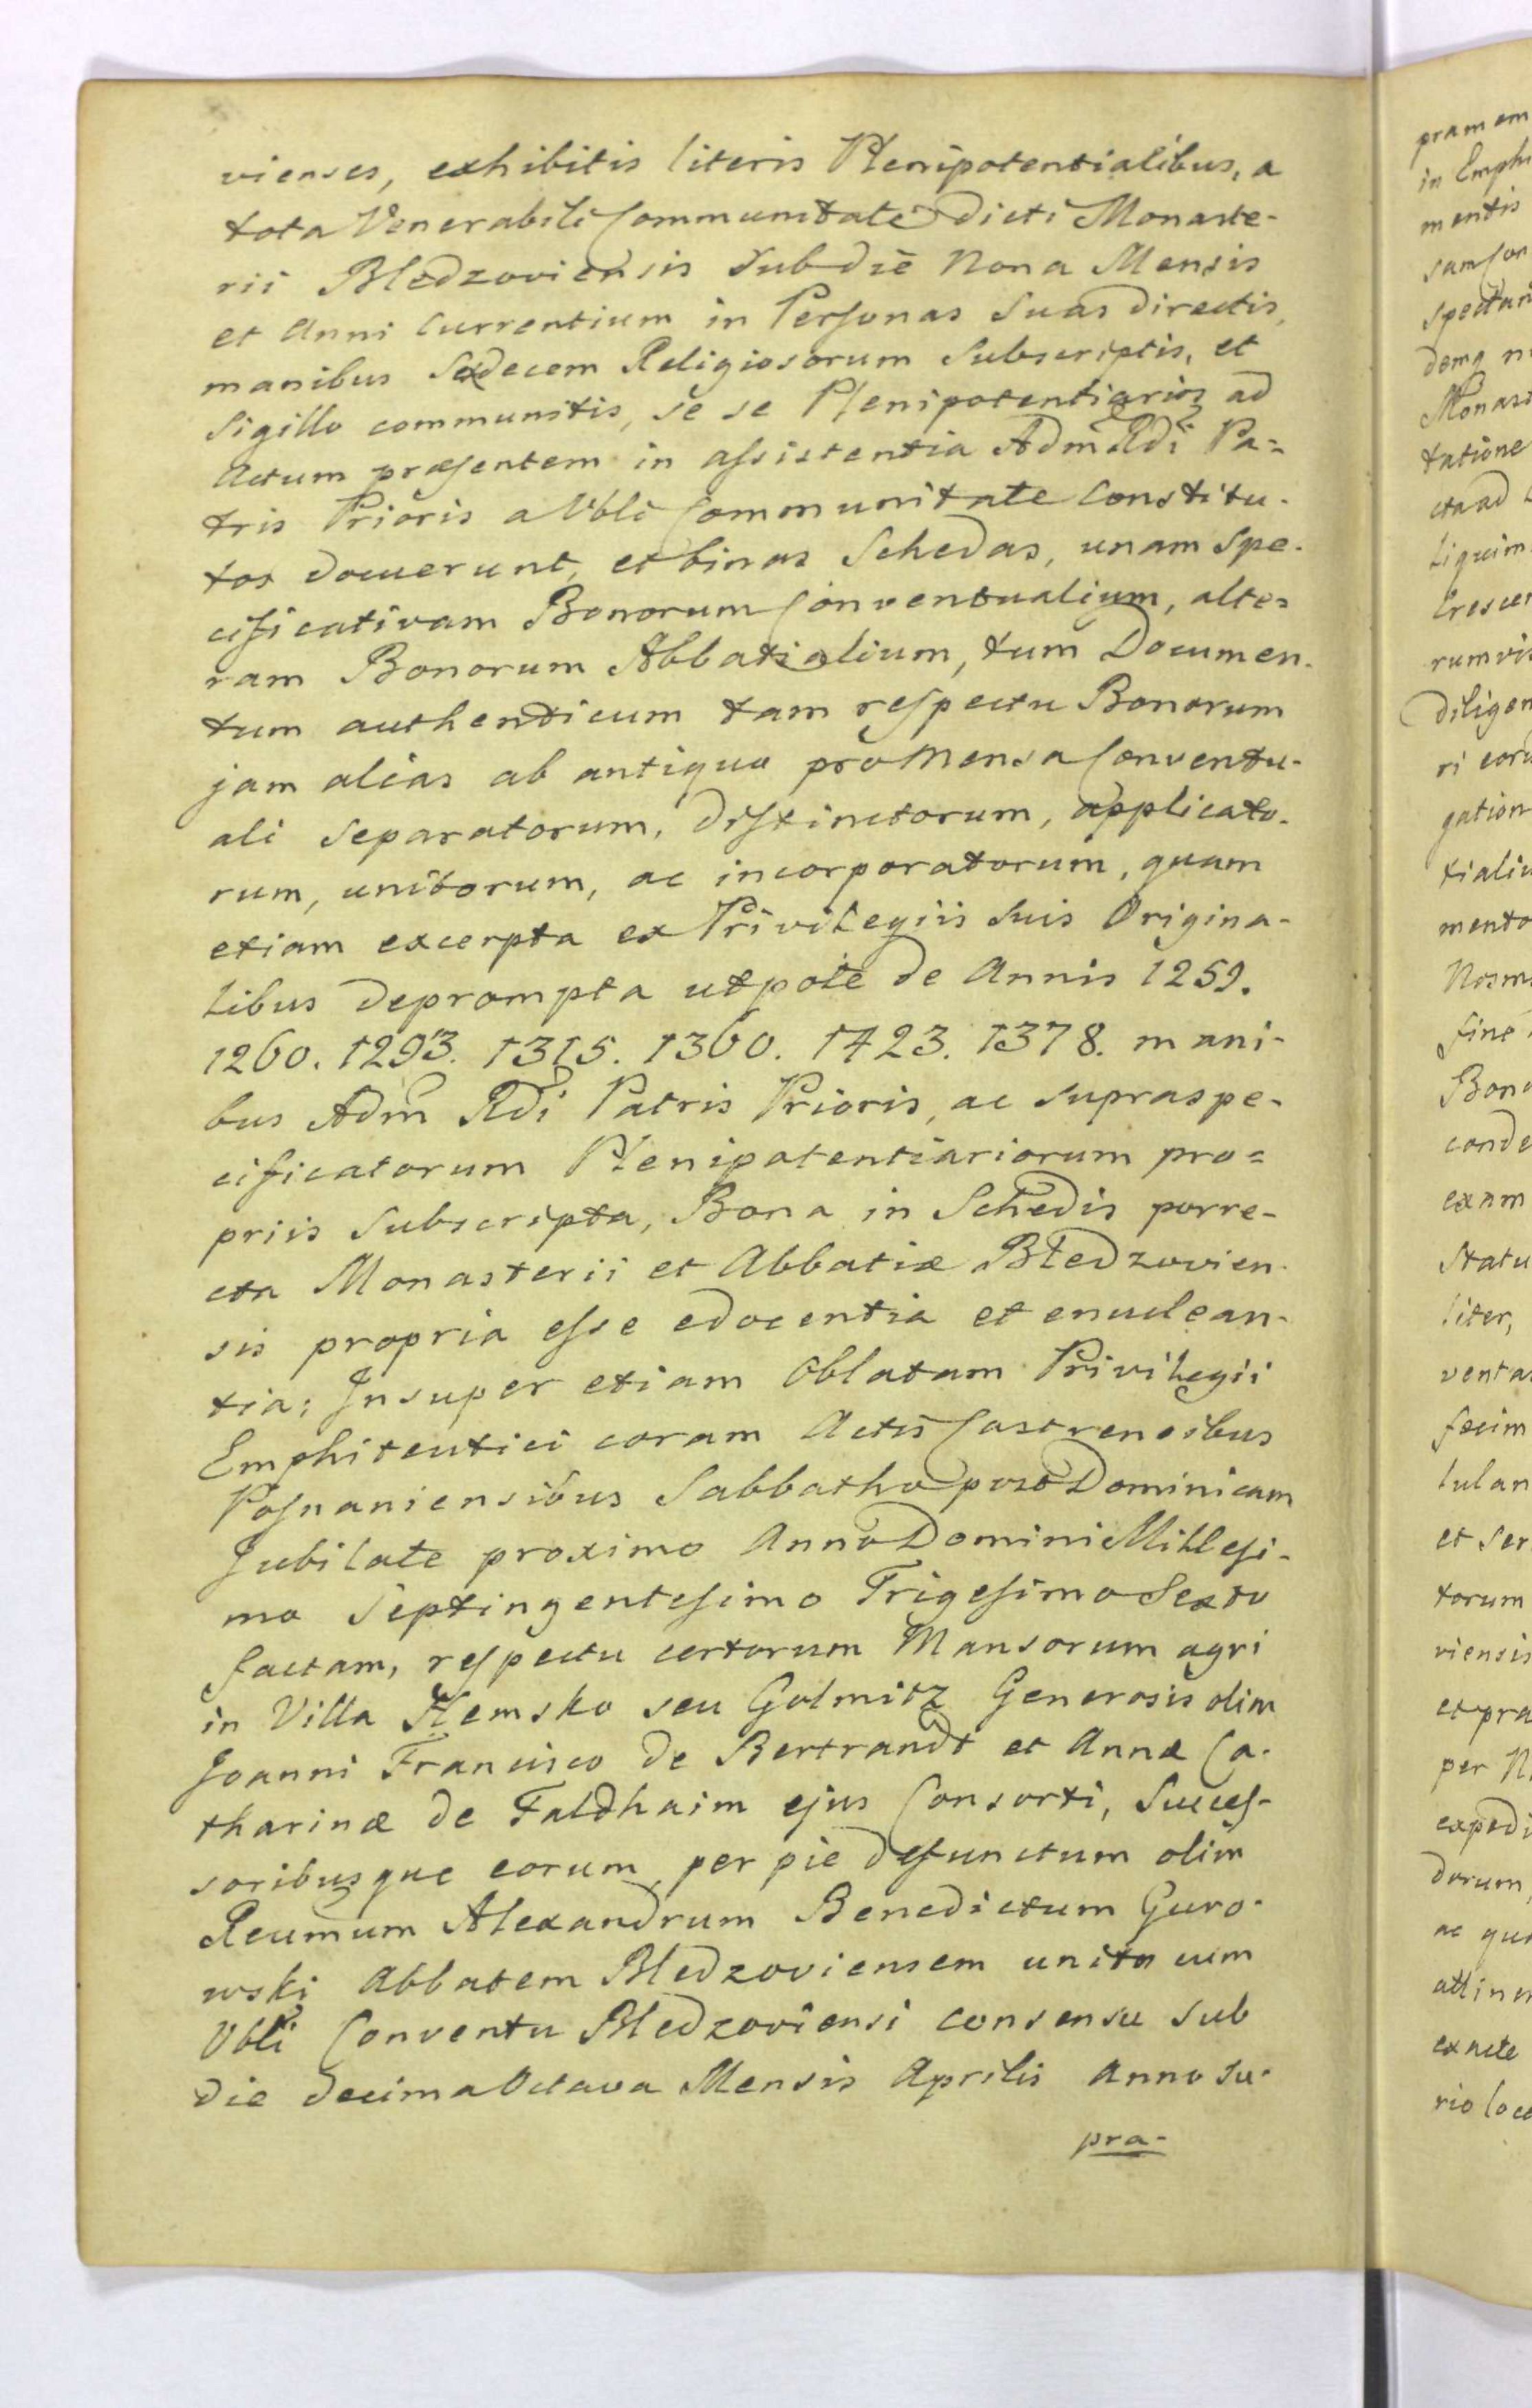 vienses, exhibitis literis Plenipotentialibus, a
tota Venerabili Communitate dicti Monaste-
rii Bledzoviensis sub die Nona Mensis
et Anni Currentium in Personas suas directis,
manibus Sexdecem Religiosorum Subscriptis, et
Sigillo communitis, se se Plenipotentiarios ad
Actum præsentem in assistentia Adm Rdi Pa=
tris Prioris a Vbli Communitate Constitu-
tos docuerunt, et binas Schedas, unam Spe-
cificativam Bonorum Conventualium, alte=
ram Bonorum Abbatialium, tum Documen-
tum authenticum tam respectu Bonorum
jam alias ab antiquo pro Mensa Conventu-
ali Separatorum, distinctorum, applicato-
rum, unitorum, ac incorporatorum, quam
etiam excerpta ex Privilegiis suis Origina-
libus deprompta utpote de Annis 1259.
1260. 1293. 1315. 1360. 1423. 1378. mani-
bus Adm Rdi Patris Prioris, ac supraspe-
cificatorum Plenipotentiariorum pro=
priis Subscripta, Bona in Schedis porre-
cta Monasterii et Abbatiæ Bledzovien-
sis propria esse edocentia et enuclean-
tia; Insuper etiam Oblatam Privilegii
Emphiteutici coram Actis Castrensibus
Posnaniensibus Sabbatho post Dominicam
Jubilate proximo Anno Domini Millesi-
mo Septingentesimo Trigesimo Sexto
factam, respectu certorum Mansorum agri
in Villa Chemsko seu Golmitz Generosis olim
Joanni Francisco de Bertrandt et Annæ Ca-
tharinæ de Faldhaim ejus Consorti, Succes-
soribusque eorum per pie defunctum olim
Reumum Alexandrum Benedictum Guro-
wski Abbatem Bledzoviensem unito cum
Vbli Conventu Bledzoviensi consensu sub
die decima Octava Mensis Aprilis Anno su-
pra-
pram em
in Emph
mentis
sam Con
spectan
demq n
Monas
tatione
cta ad
liquim
Crescen
rum vi
diligen
ri eoru
gation
tialiu
mento
Nosm
fine
Bono
conde
exnm
Statu
liter,
venta
fecim
lulan
et ser
torum
viensis
et pra
per N
expedi
dorum
ac qu
attine
exacte
rio loco